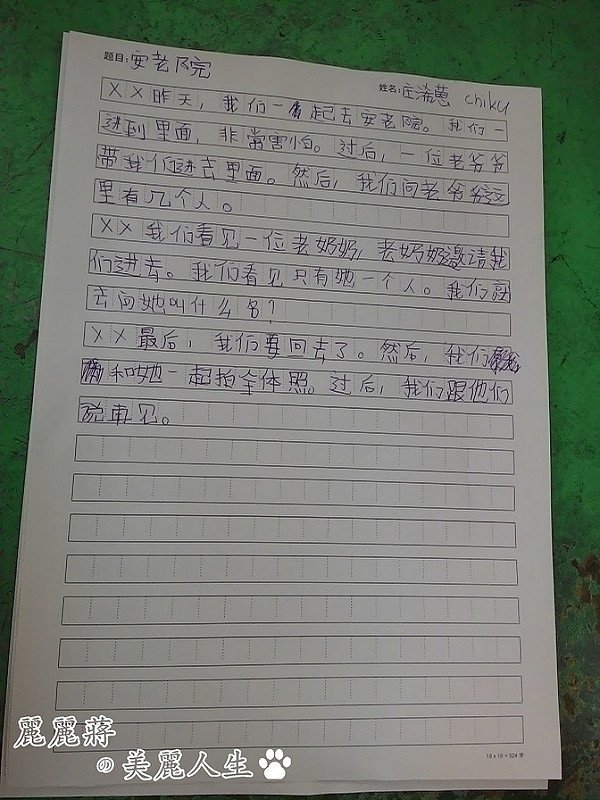 题目：安老院
姓名：庄浠蒽 chiku
××昨天，我们一起去安老院。我们一
进到里面，非常害怕。过后，一位老爷爷
带我们进去里面。然后，我们问老爷爷这
里有几个人。
××我们看见一位老奶奶，老奶奶邀请我
们进去。我们看见只有她一个人。我们就
去问她叫什么名？
××最后，我们要回去了。然后，我们
和她一起拍全体照。过后，我们跟他们
说再见。
18 x 18 = 324 字
麗麗蔣
の美麗人生